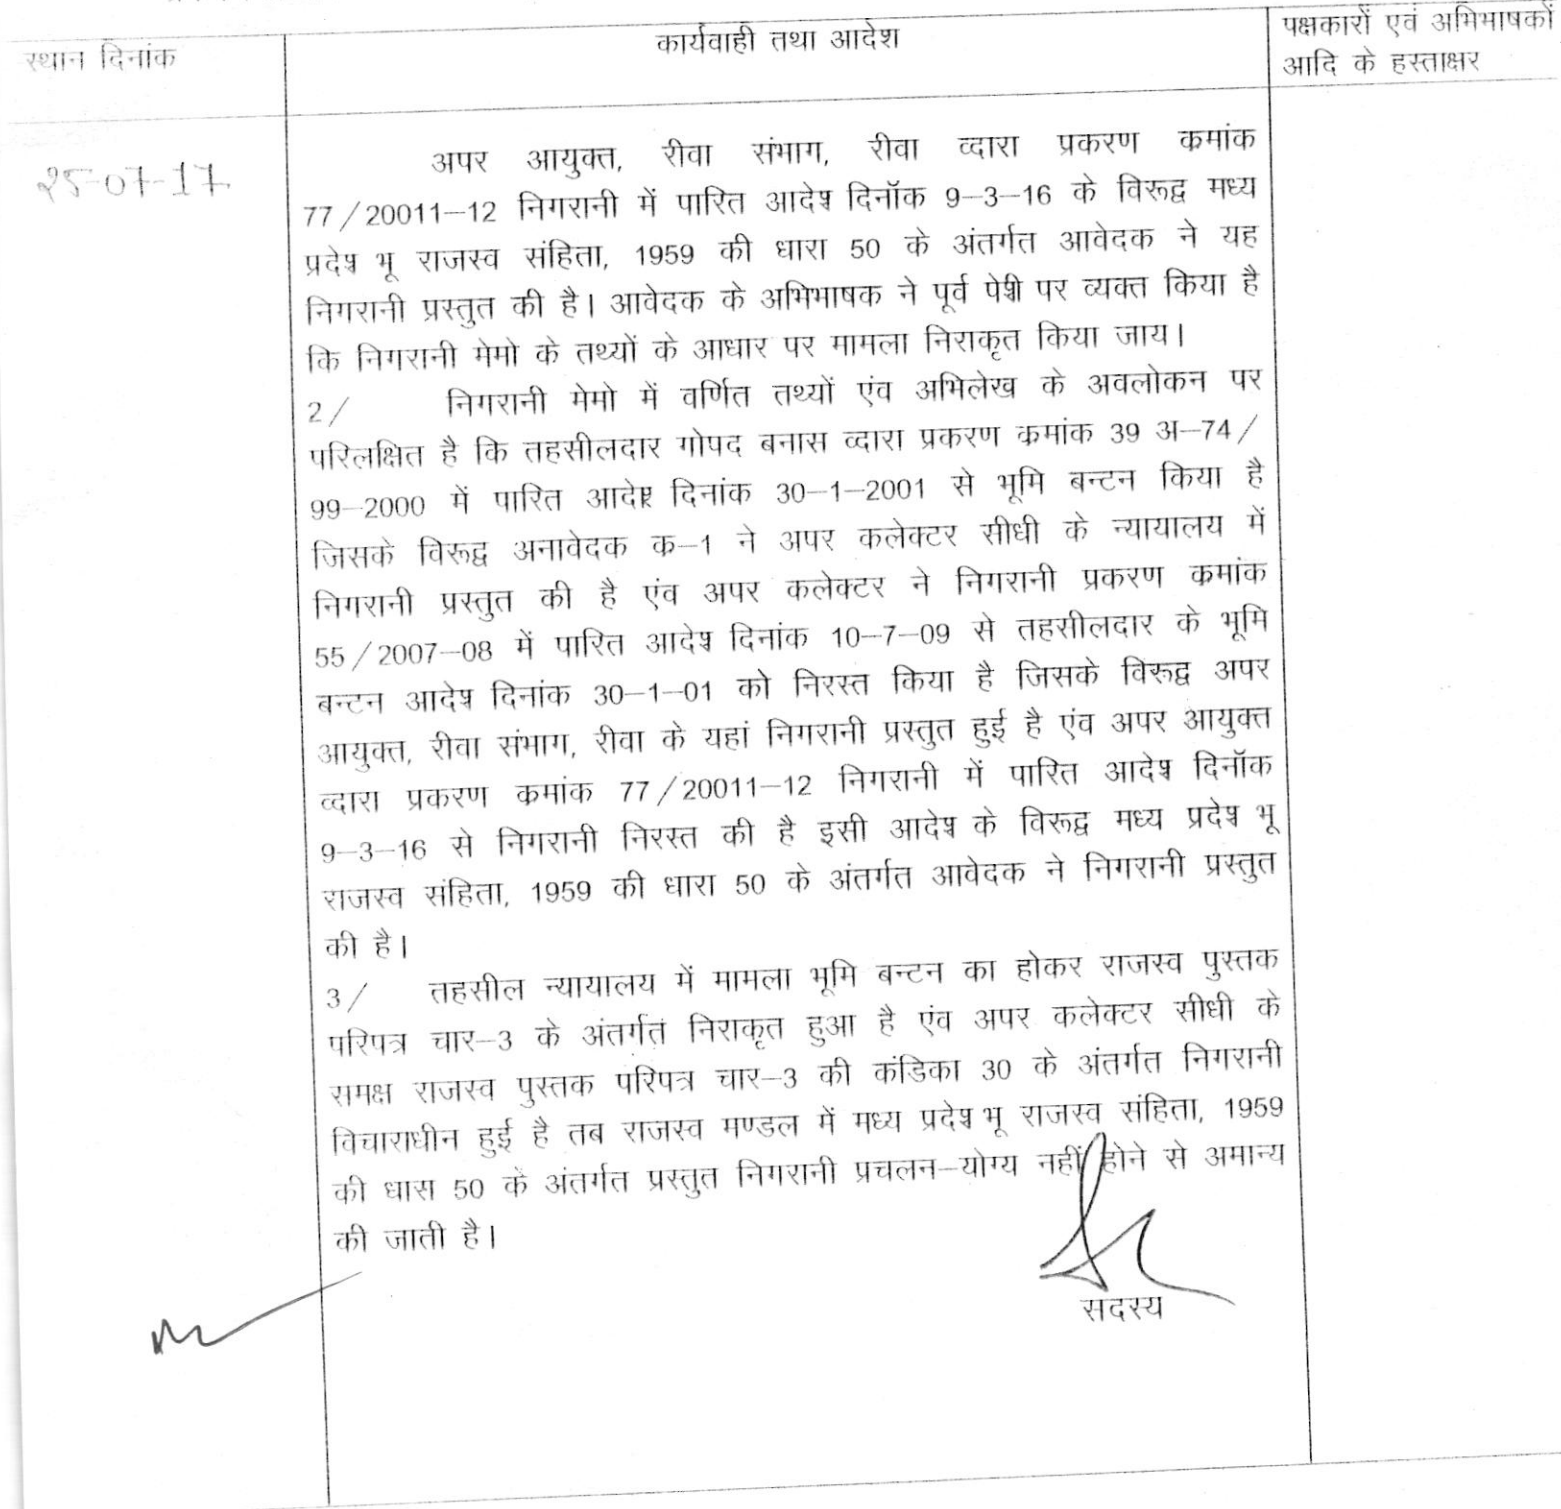 स्थान दिनांक
कार्यवाही तथा आदेश
पक्षकारों एवं अभिभाषकों
आदि के हस्ताक्षर
25-07-17
अपर आयुक्त, रीवा संभाग, रीवा व्दारा प्रकरण कमांक
77/20011-12 निगरानी में पारित आदेश दिनॉक 9-3-16 के विरूद्व मध्य
प्रदेश भू राजस्व संहिता, 1959 की धारा 50 के अंतर्गत आवेदक ने यह
निगरानी प्रस्तुत की है। आवेदक के अभिभाषक ने पूर्व पेशी पर व्यक्त किया है
कि निगरानी मेमो के तथ्यों के आधार पर मामला निराकृत किया जाय।
2/ निगरानी मेमो में वर्णित तथ्यों एंव अभिलेख के अवलोकन पर
परिलक्षित है कि तहसीलदार गोपद बनास व्दारा प्रकरण कमांक 39 अ-74/
99-2000 में पारित आदेश दिनांक 30-1-2001 से भूमि बन्टन किया है
जिसके विरूद्व अनावेदक क-1 ने अपर कलेक्टर सीधी के न्यायालय में
निगरानी प्रस्तुत की है एंव अपर कलेक्टर ने निगरानी प्रकरण कमांक
55/2007-08 में पारित आदेश दिनांक 10-7-09 से तहसीलदार के भूमि
बन्टन आदेश दिनांक 30-1-01 को निरस्त किया है जिसके विरूद्व अपर
आयुक्त, रीवा संभाग, रीवा के यहां निगरानी प्रस्तुत हुई है एंव अपर आयुक्त
व्दारा प्रकरण कमांक 77/20011-12 निगरानी में पारित आदेश दिनॉक
9-3-16 से निगरानी निरस्त की है इसी आदेश के विरूद्व मध्य प्रदेश भू
राजस्व संहिता, 1959 की धारा 50 के अंतर्गत आवेदक ने निगरानी प्रस्तुत
की है।
3/ तहसील न्यायालय में मामला भूमि बन्टन का होकर राजस्व पुस्तक
परिपत्र चार-3 के अंतर्गत निराकृत हुआ है एंव अपर कलेक्टर सीधी के
समक्ष राजस्व पुस्तक परिपत्र चार-3 की कंडिका 30 के अंतर्गत निगरानी
विचाराधीन हुई है तब राजस्व मण्डल में मध्य प्रदेश भू राजस्व संहिता, 1959
की धारा 50 के अंतर्गत प्रस्तुत निगरानी प्रचलन-योग्य नहीं होने से अमान्य
की जाती है।
सदस्य